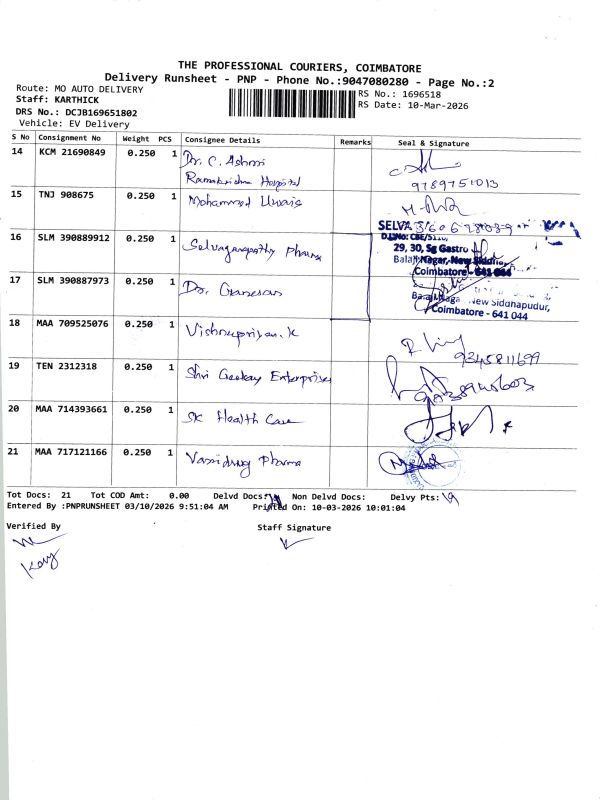 THE PROFESSIONAL COURIERS, COIMBATORE
Delivery Runsheet - PNP - Phone No.:9047080280 - Page No.:2
Route: MO AUTO DELIVERY
RS No.: 1696518
Staff: KARTHICK
RS Date: 10-Mar-2026
DRS No.: DCJB169651802
Vehicle: EV Delivery
S No Consignment No Weight PCS Consignee Details Remarks Seal & Signature
14 KCM 21690849 0.250 1 Dr. C. Ashmi
Ramakrishna Hospital
9789751013
15 TNJ 908675 0.250 1 Mohammed Uwais
SELVA
D.L.No: CBE/
16 SLM 390889912 0.250 1 Selvaganapathy Pharma
29, 30, Sg Gastro
Balaji Nagar, New Siddha
Coimbatore - 641 044
17 SLM 390887973 0.250 1 Dr. Ganesan
Balaji Naga New Sidhapudur,
Coimbatore - 641 044
18 MAA 709525076 0.250 1 Vishnupriyan. K
9345811699
19 TEN 2312318 0.250 1 Shri Geekay Enterprises
20 MAA 714393661 0.250 1 SK Health Care
21 MAA 717121166 0.250 1 Vassidrug Pharma
Tot Docs: 21 Tot COD Amt: 0.00 Delvd Docs: Non Delvd Docs: Delvy Pts: 19
Entered By :PNPRUNSHEET 03/10/2026 9:51:04 AM Printed On: 10-03-2026 10:01:04
Verified By Staff Signature